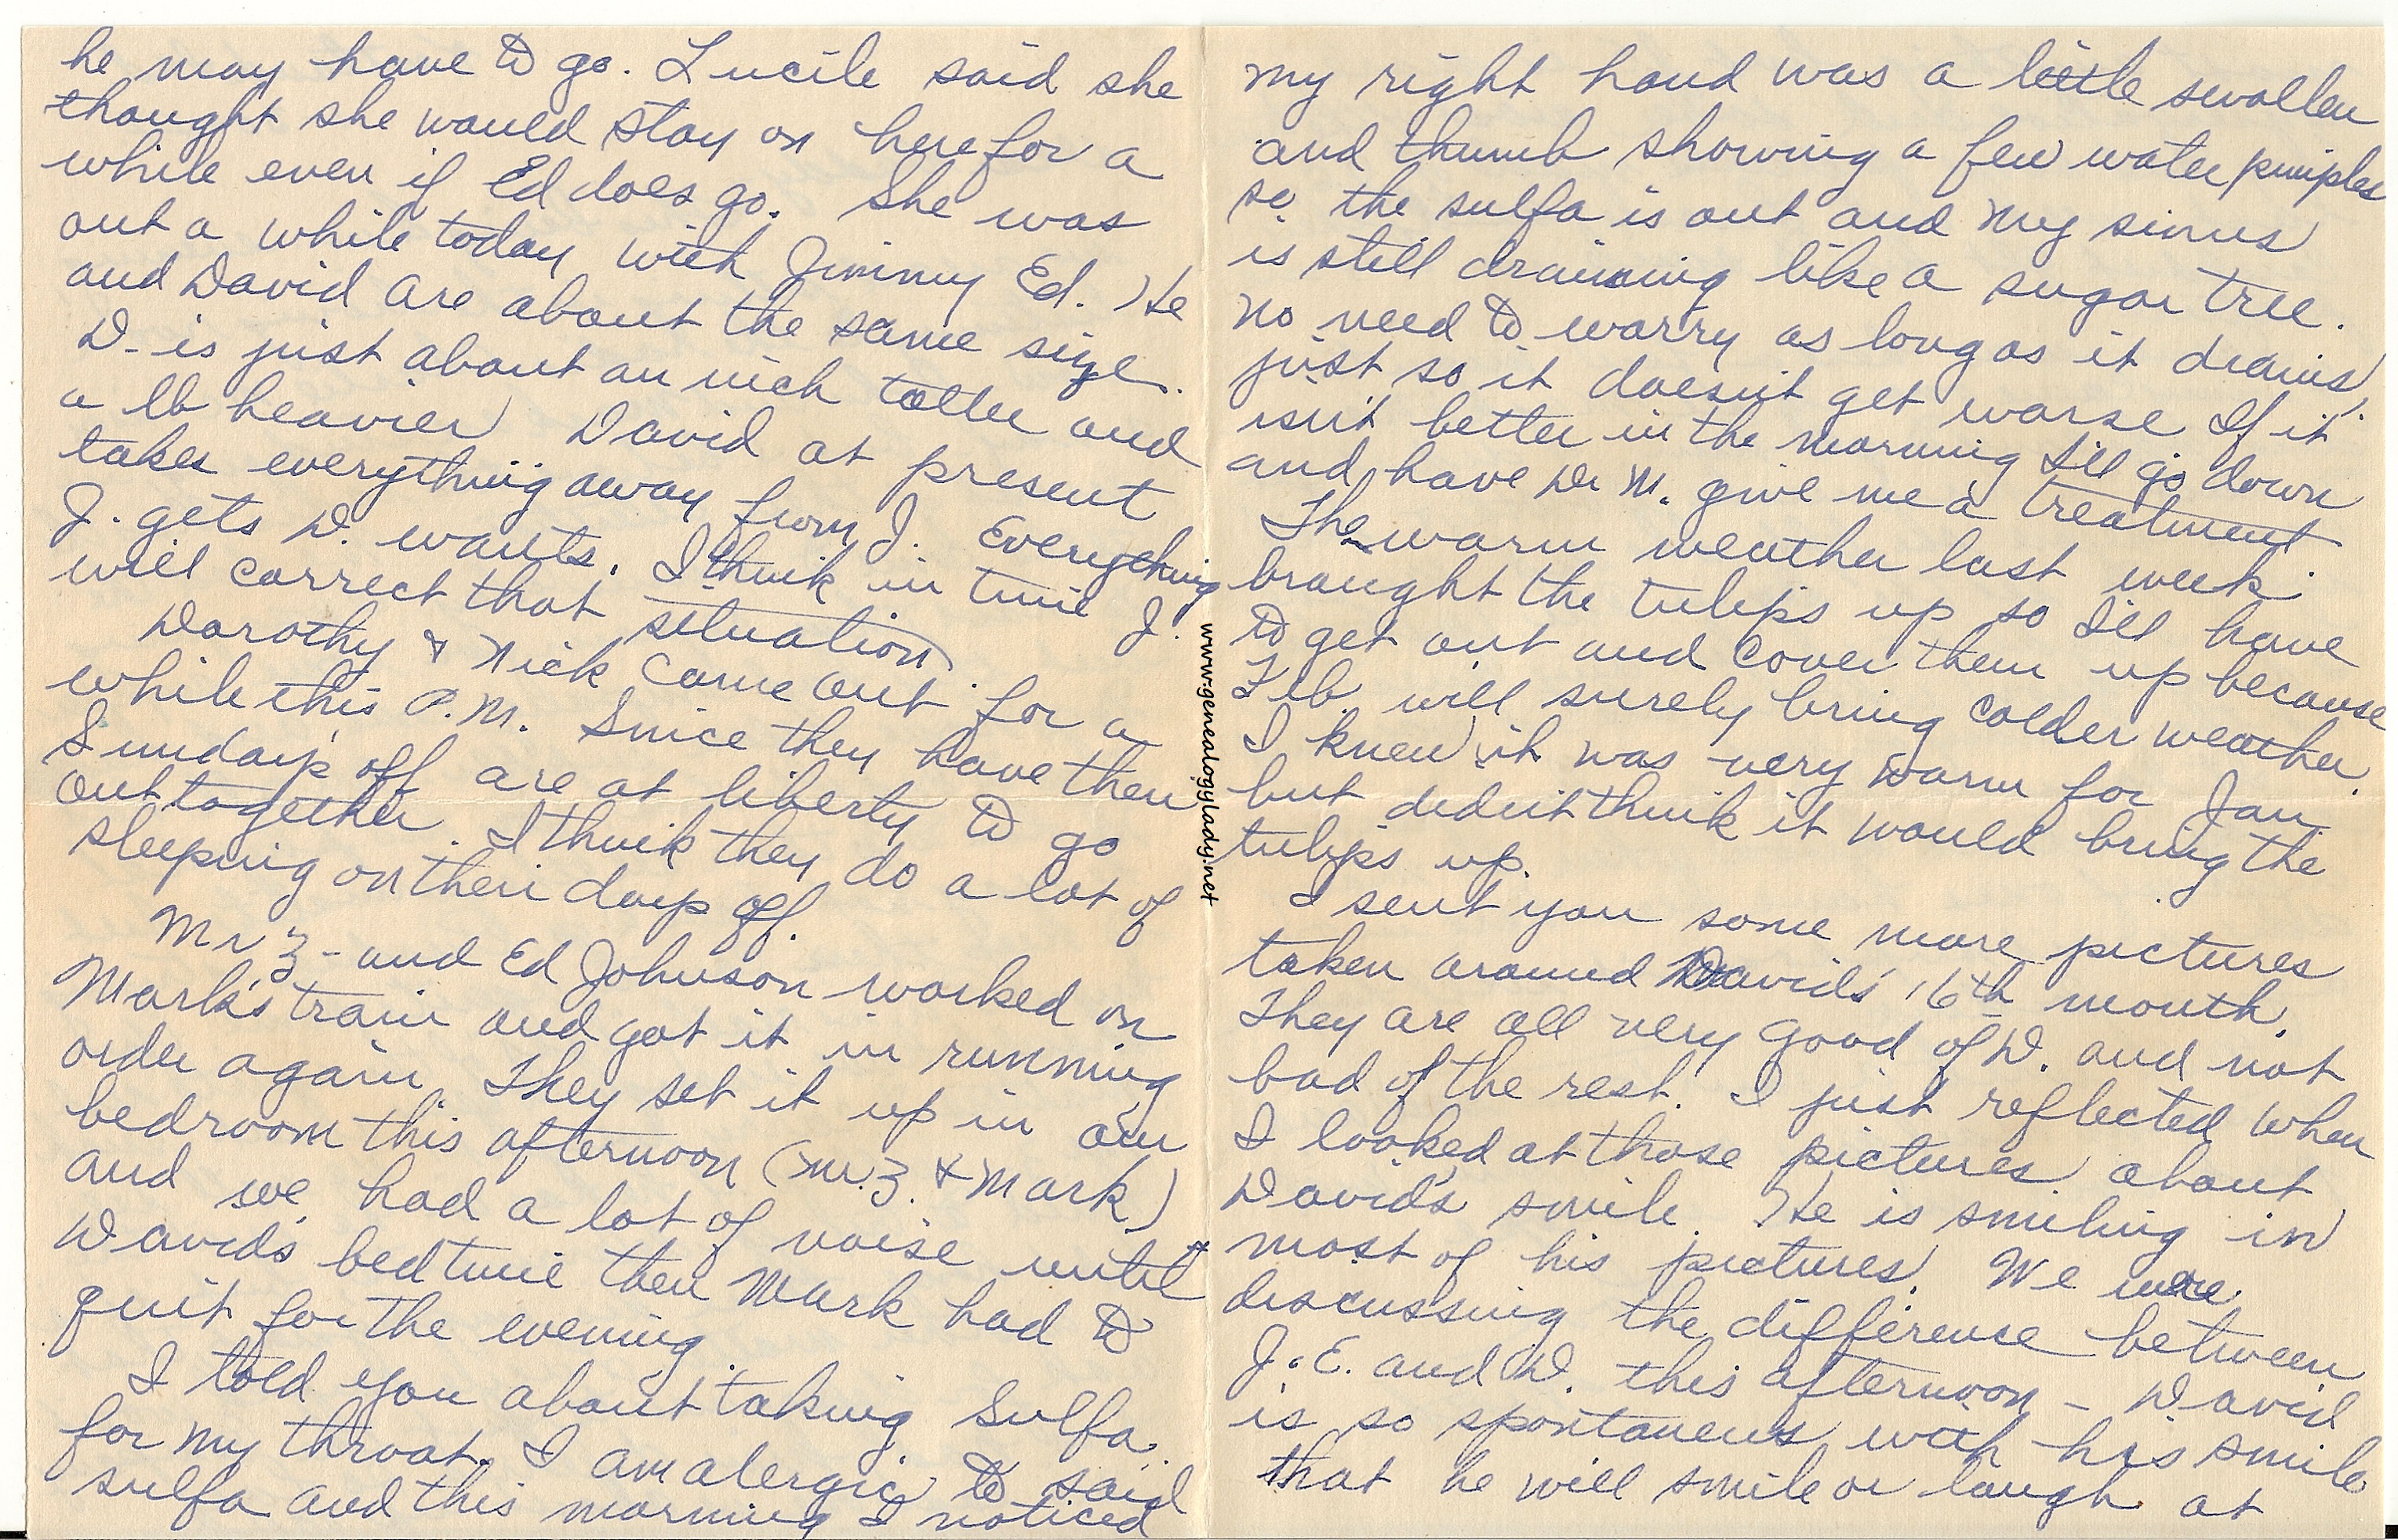 he may have to go. Lucile said she
thought she would stay on here for a
while even if Ed does go. She was
out a while today with Jimmy Ed. He
and David are about the same size.
D- is just about an inch taller and
a lb heavier David at present
takes everything away from J. Everything
J. gets D. wants. I think in time J.
will correct that situation.
Dorothy & Nick came out for a
while this P.M. Since they have their
Sundays off are at liberty to go
out together. I think they do a lot of
sleeping on their days off.
Mr Z- and Ed Johnson worked on
Mark's train and got it in running
order again. They set it up in our
bedroom this afternoon (Mr. Z. & Mark)
and we had a lot of noise until
David's bedtime then Mark had to
quit for the evening.
I told you about taking Sulfa
for my throat. I am alergic to said
sulfa and this morning I noticed
my right hand was a little swollen
and thumb showing a few water pimples
so the sulfa is out and my sinus
is still draining like a sugar tree.
No need to worry as long as it drains,
just so it doesn't get worse If it
isn't better in the morning I'll go down
and have Dr M. give me a treatment
The warm weather last week
brought the tulips up so I'll have
to get out and cover them up because
Feb. will surely bring colder weather.
I knew it was very warm for Jan
but didn't think it would bring the
tulips up.
I sent you some more pictures
taken around David's 16th month.
They are all very good of D. and not
bad of the rest. I just reflected when
I looked at those pictures about
David's smile. He is smiling in
most of his pictures. We were
discussing the difference between
J.E. and D. this afternoon - David
is so spontaneous with his smile
that he will smile or laugh at
www.genealogylady.net